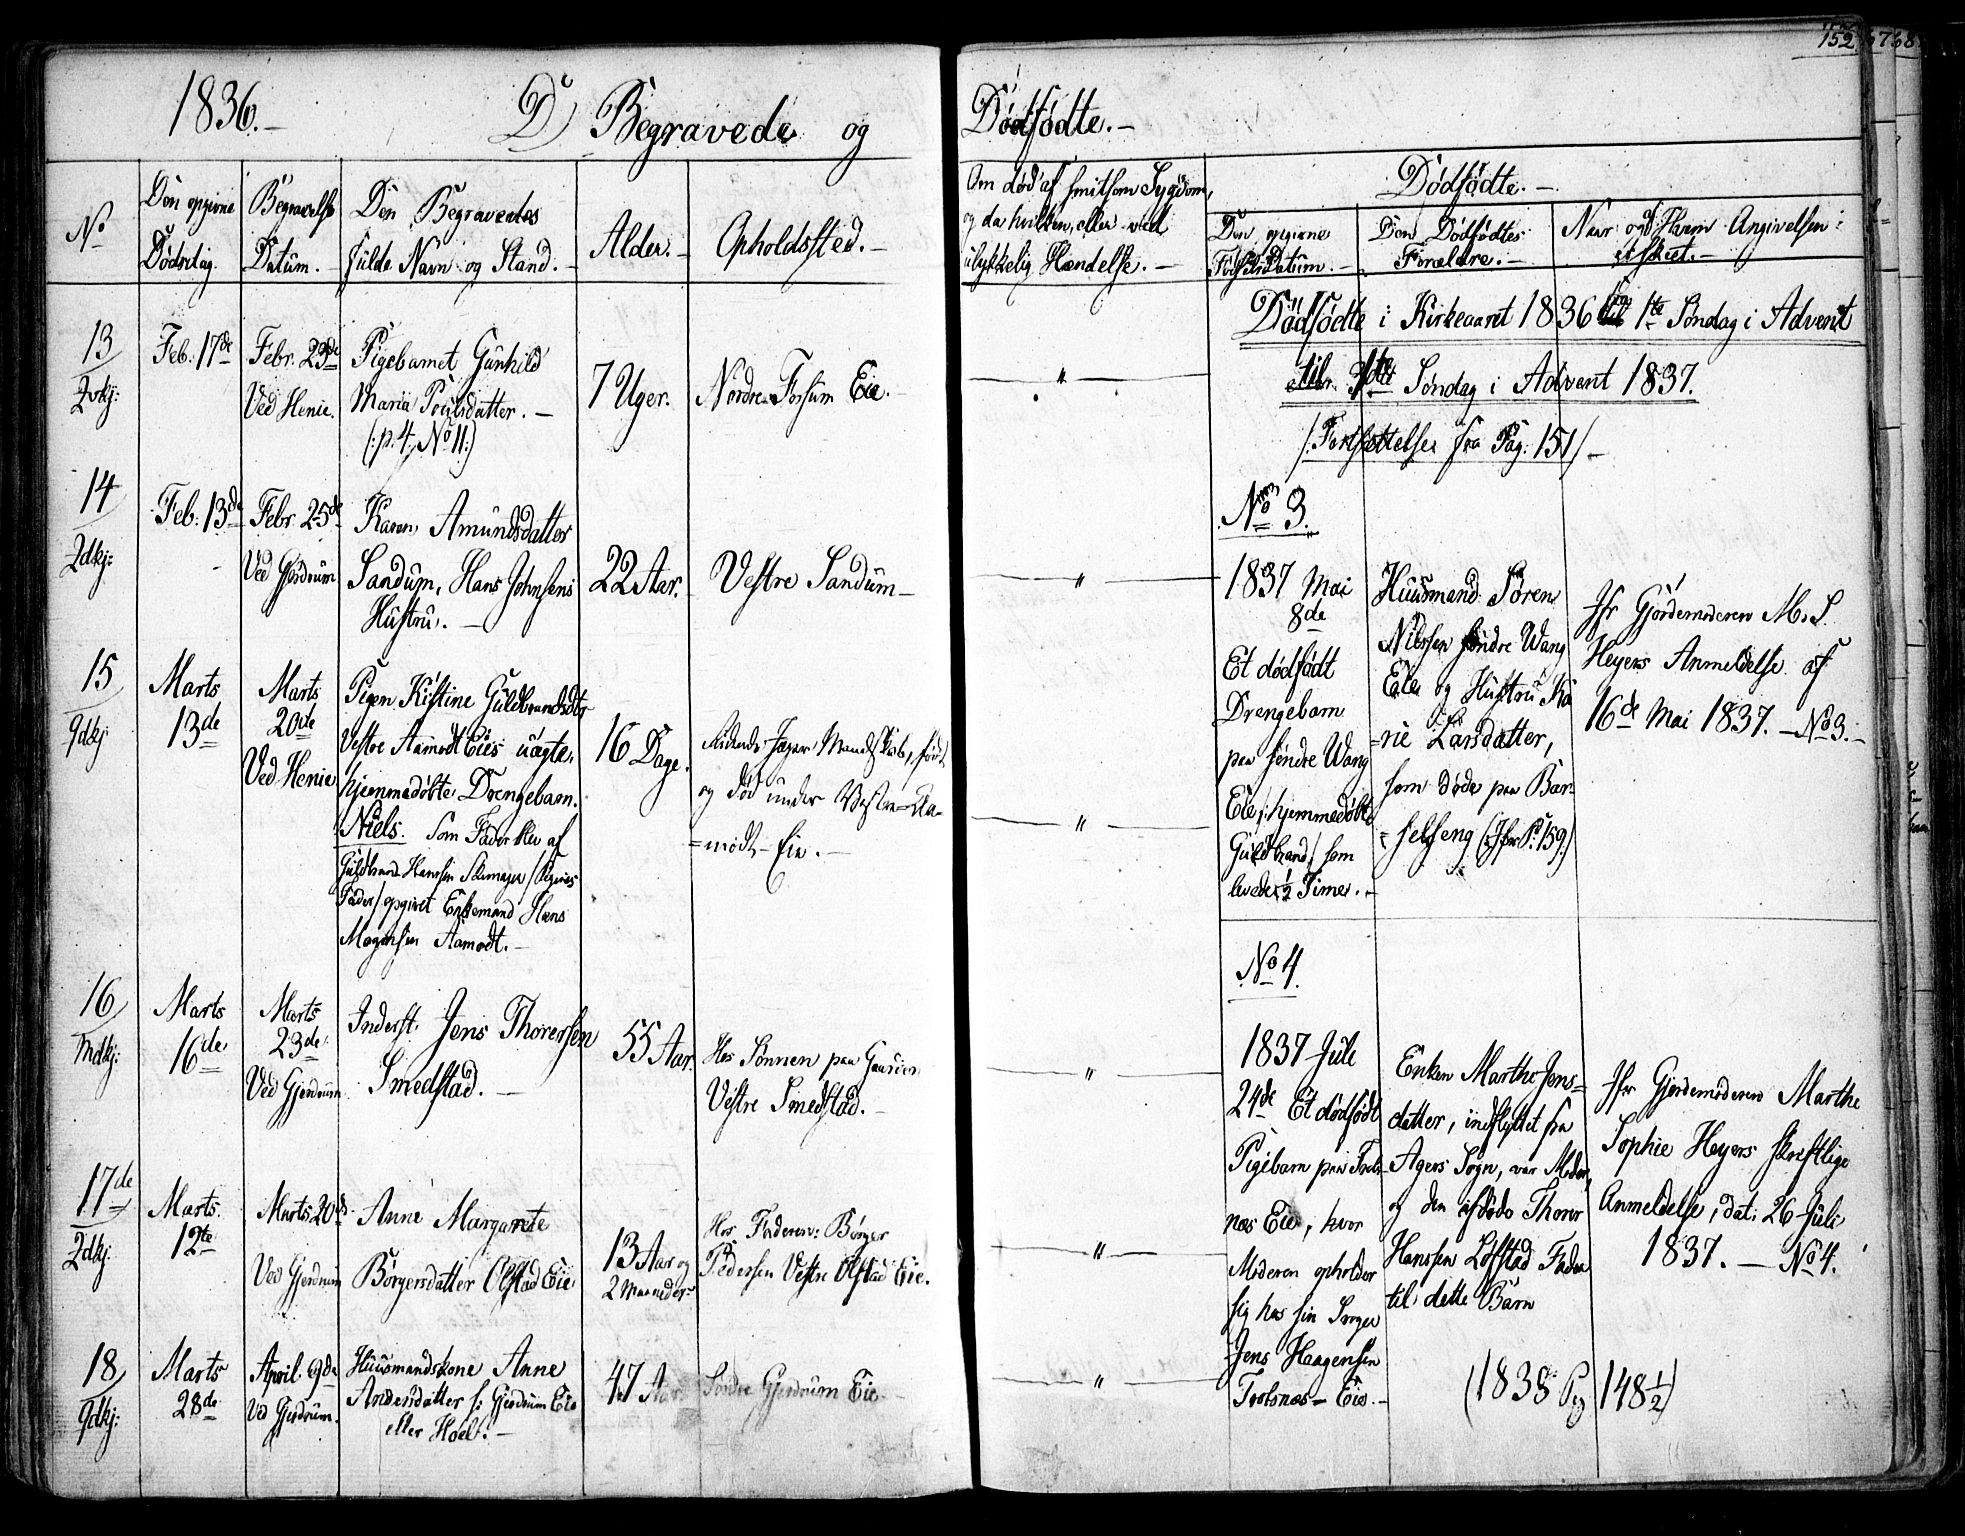 152
1836.–
D) Begravede og
Dødfødte.–
No
Den opgivne
Dødsdag.
Begravelse
Datum.–
Den Begravedes
fulde Navn og Stand.–
Alder.–
Opholdssted.–
Om død af smitsom Sygdom,
og da hvilken, eller ved
ulykkelig Hændelse.–
Dødfødte.–
Den opgivne
Fødselsdatum.–
Den Dødfødtes
Forældre.–
Naar og af Hvem Angivelsen
er skeet.–
13
Feb: 17de
Febr. 23de
Ved Henie.
Pigebarnet Gunhild
Maria Poulsdatter.–
(: p. 4, No 11:)
7 Uger.
Nordre Fossum Eie.–
"
14
Feb: 13de
Febr. 25de
Ved Gjerdrum
Karen Amundsdatter
Sandum, Hans Johnsens
Hustru.–
22 Aar.
Vestre Sandum–
"
15
Marts
13de
Marts
20de
Ved Henie
Pigen Kistine Guldbrandsdtr
Vestre Aamodt Eies uægte,
hjemmedøbte Drengebarn.
Niels. Som Fader blev af
Guldbrand Hanssen Skumager / Pigens
Fader / opgivet Enkemand Hans
Mogensen Aamodt.–
16 Dage.
Ridende Jæger Mandskab, født
og død under Vestre Aa-
=modt–Eie.–
"
16
Marts
16de
Marts
23de
Ved Gjerdrum
Inderst: Jens Thoresen
Smedstad.–
55 Aar.
Hos Sønnen paa Gaarden
Vestre Smedstad.–
"
17de
Marts
12te
Marts 20de
Ved Gjerdrum
Anne Margarete
Børgersdatter Olstad Eie
13 Aar og
2 Maaneder
Hos Faderen: Børger
Pedersen Vestre Olstad Eie.
"
18
Marts
28de
April 9de
Ved Gjerdrum.
Huusmandskone Anne
Andersdatter s: Gjerdrum Eie
eller Hoel.–
47 Aar
Søndre Gjerdrum Eie
"
Dødfødte i Kirkeaaret 1836 fra 1te Søndag i Advent
til 1ste Søndag i Advent 1837.
/: Fortsættelse fra Pag: 151 /–
No 3.
1837 Mai
8de
Et dødfødt
Drengebarn
paa søndre Wang
Eie /: hjemmedøbt
Guldbrand / som
levede ½ Time.–
Huusmand Søren
Nilssen søndre Wang
Eie og Hustru Ka
=rie Larsdatter,
som døde paa Bar-
=selseng (Jfr P: 159.)
Jfr Gjordemoderen M. S.
Heyers Anmeldelse af
16de Mai 1837.– No 3.–
No 4.
1837 Juli
24de Et dødfødt
Pigebarn paa Frøls
næs Eie, hvor
Moderen opholder
sig hos sin Svoger
Jens Haagensen
Eie.–
Enken Marthe Jens=
datter, indflyttet fra
Agers Sogn, var Moder,
og den afdøde Thorer
Hanssen Løfstad Fader
til dette Barn
Jfr Gjordemoderen Marthe
Sophie Heyers skriftlige
Anmeldelse, dat: 26 Juli
1837.– No 4.
(1838 Pag 148½)